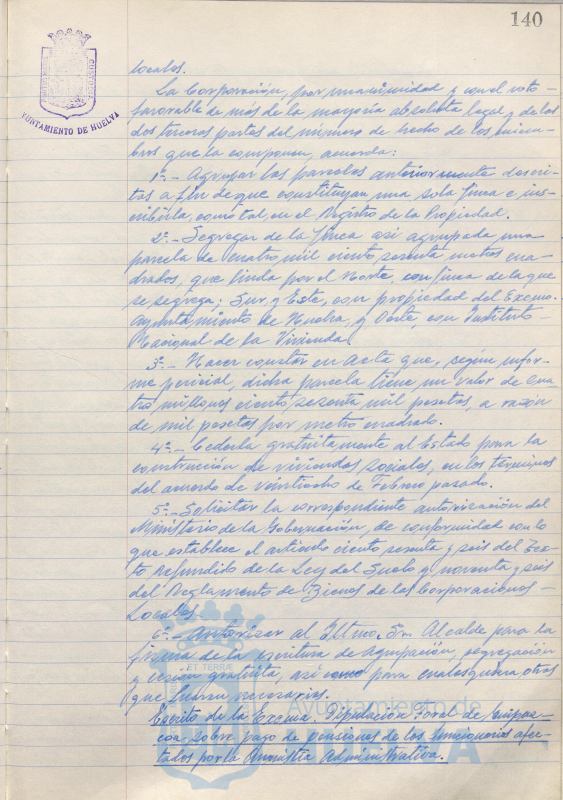 140
AYUNTAMIENTO DE HUELVA
locales.
La Corporación, por unanimidad y con el voto
favorable de más de la mayoría absoluta legal y de las
dos terceras partes del número de hecho de los miem-
bros que la componen, acuerda:
1º.- Agrupar las parcelas anteriormente descri-
tas a fin de que constituyan una sola finca e ins-
cribirla, como tal, en el Registro de la Propiedad.
2º.- Segregar de la finca así agrupada una
parcela de cuatro mil ciento sesenta metros cua-
drados, que linda por el Norte, con finca de la que
se segrega; Sur y Este, con propiedad del Excmo.
Ayuntamiento de Huelva, y Oeste, con Instituto-
Nacional de la Vivienda.
3º.- Hacer constar en acta que, según infor-
me pericial, dicha parcela tiene un valor de cua
tro millones ciento sesenta mil pesetas, a razón
de mil pesetas por metro cuadrado.
4º.- Cederla gratuitamente al Estado para la
construcción de viviendas sociales, en los términos
del acuerdo de veintiocho de Febrero pasado.
5º.- Solicitar la correspondiente autorización del
Ministerio de la Gobernación, de conformidad con lo
que establece el artículo ciento sesenta y seis del Tex-
to Refundido de la Ley del Suelo y noventa y seis
del Reglamento de Bienes de las Corporaciones-
Locales.
6º.- Autorizar al Iltmo. Sr. Alcalde para la
firma de la escritura de agrupación, segregación
y cesión gratuita, así como para cualesquiera otros
que fueran necesarios.
Escrito de la Excma. Diputación Foral de Guipuz-
coa sobre pago de pensiones de los funcionarios afec-
tados por la Amnistía Administrativa.
ET TERRÆ
Ayuntamiento de
HUELVA